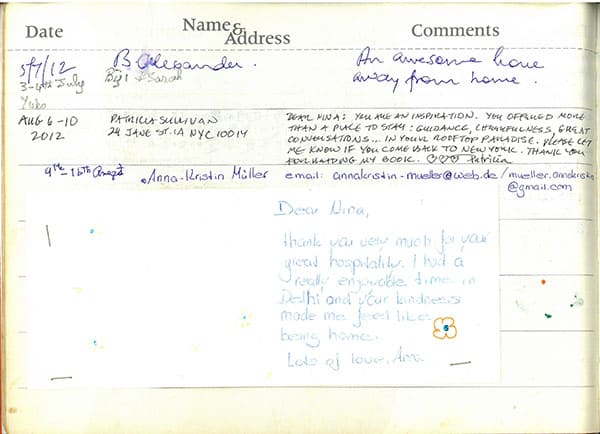 Date Name & Address Comments
5/7/12 B Alegander. An awesome home
away from home.
3-4th July Biji & Sarah
Yuko
AUG 6-10 PATRICIA SULLIVAN DEAR NINA: YOU ARE AN INSPIRATION. YOU OFFERED MORE
2012 24 JANE ST. 1A NYC 10014 THAN A PLACE TO STAY: GUIDANCE, CHEERFULNESS, GREAT
CONVERSATIONS... IN YOUR ROOFTOP PARADISE. PLEASE LET
ME KNOW IF YOU COME BACK TO NEW YORK. THANK YOU
FOR READING MY BOOK. ♡♡♡ Patricia
9th-16th August Anna-Kristin Müller email: annakristin-mueller@web.de / mueller.annakristin
@gmail.com
Dear Nina,
thank you very much for your
great hospitality. I had a
really enjoyable time in
Delhi and your kindness
made me feel like
being home.
Lots of love, Anna